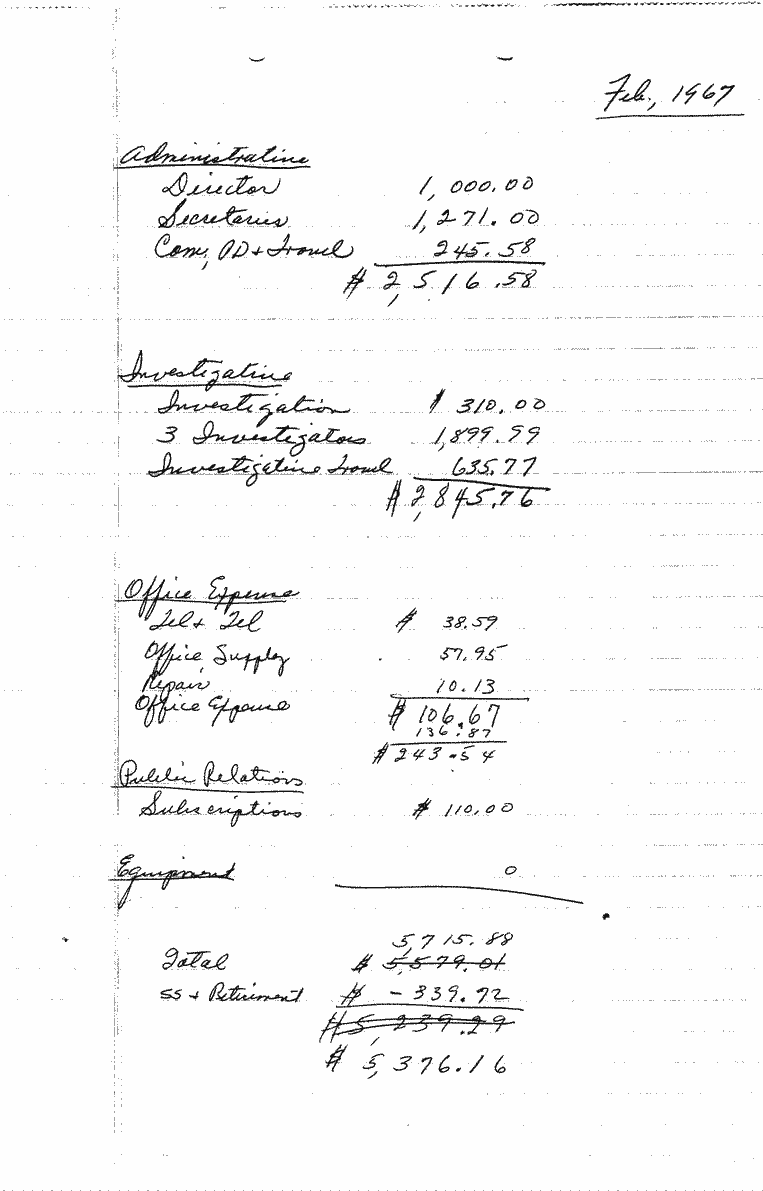 Feb., 1967
Administrative
Director 1,000.00
Secretaries 1,271.00
Com, PD + Travel 245.58
$ 2,516.58
Investigative
Investigation $ 310.00
3 Investigators 1,899.99
Investigative Travel 635.77
$ 2,845.76
Office Expense
Tel + Tel $ 38.59
Office Supply 57.95
Repair 10.13
Office Expense $ 106.67
136.87
$ 243.54
Public Relations
Subscriptions $ 110.00
Equipment 0
5,715.88
Total $ 5,579.01
SS + Retirement $ - 339.72
$ 5,239.29
$ 5,376.16